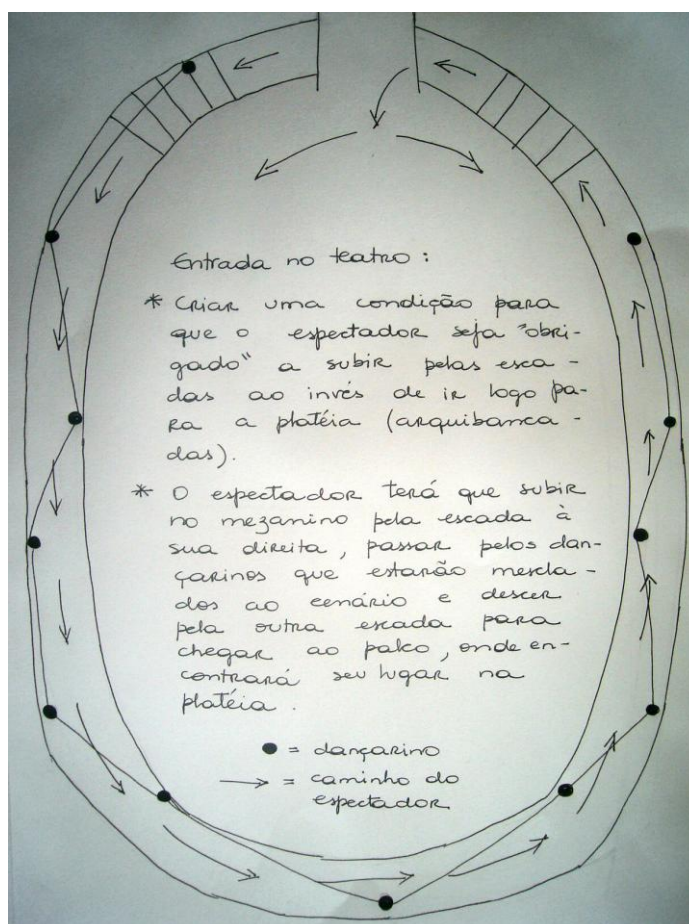 Entrada no teatro :
* Criar uma condição para
que o espectador seja "obri-
gado" a subir pelas esca-
das ao invés de ir logo pa-
ra a platéia (arquibanca-
das).
* O espectador terá que subir
no mezanino pela escada à
sua direita, passar pelos dan-
çarinos que estarão mescla-
dos ao cenário e descer
pela outra escada para
chegar ao palco, onde en-
contrará seu lugar na
platéia.
● = dançarino
→ = caminho do
espectador